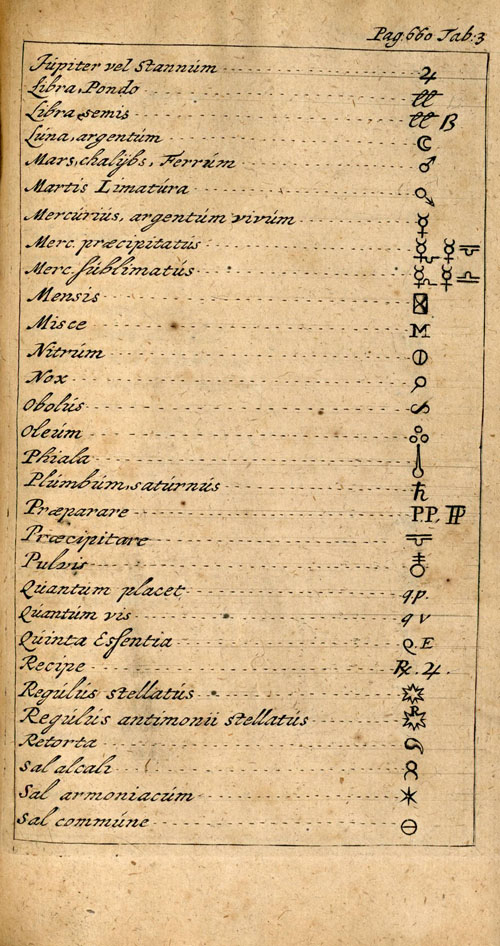 Pag.660 Tab:3
Júpiter vel Stannúm ♃
Libra, Pondo ℔
Libra semis ℔ ß
Lúna, argentúm ☾
Mars, chalÿbs, Ferrúm ♂
Martis Limatúra ♂
Mercúriús, argentúm vivúm ☿
Merc. præcipitatus ☿
Merc. súblimatús ☿
Mensis
Misce M
Nitrúm
Nox
Obolús
Oleúm
Phiala
Plúmbúm, satúrnús ♄
Præparare P.P. PP
Præcipitare
Pulvis
Qúantúm placet q.p.
Qúantúm vis q v
Qúinta Essentia Q.E
Recipe ℞. ♃.
Regúlús stellatús
Regúlús antimonii stellatús R
Retorta
Sal alcali
Sal armoniacúm
Sal commúne